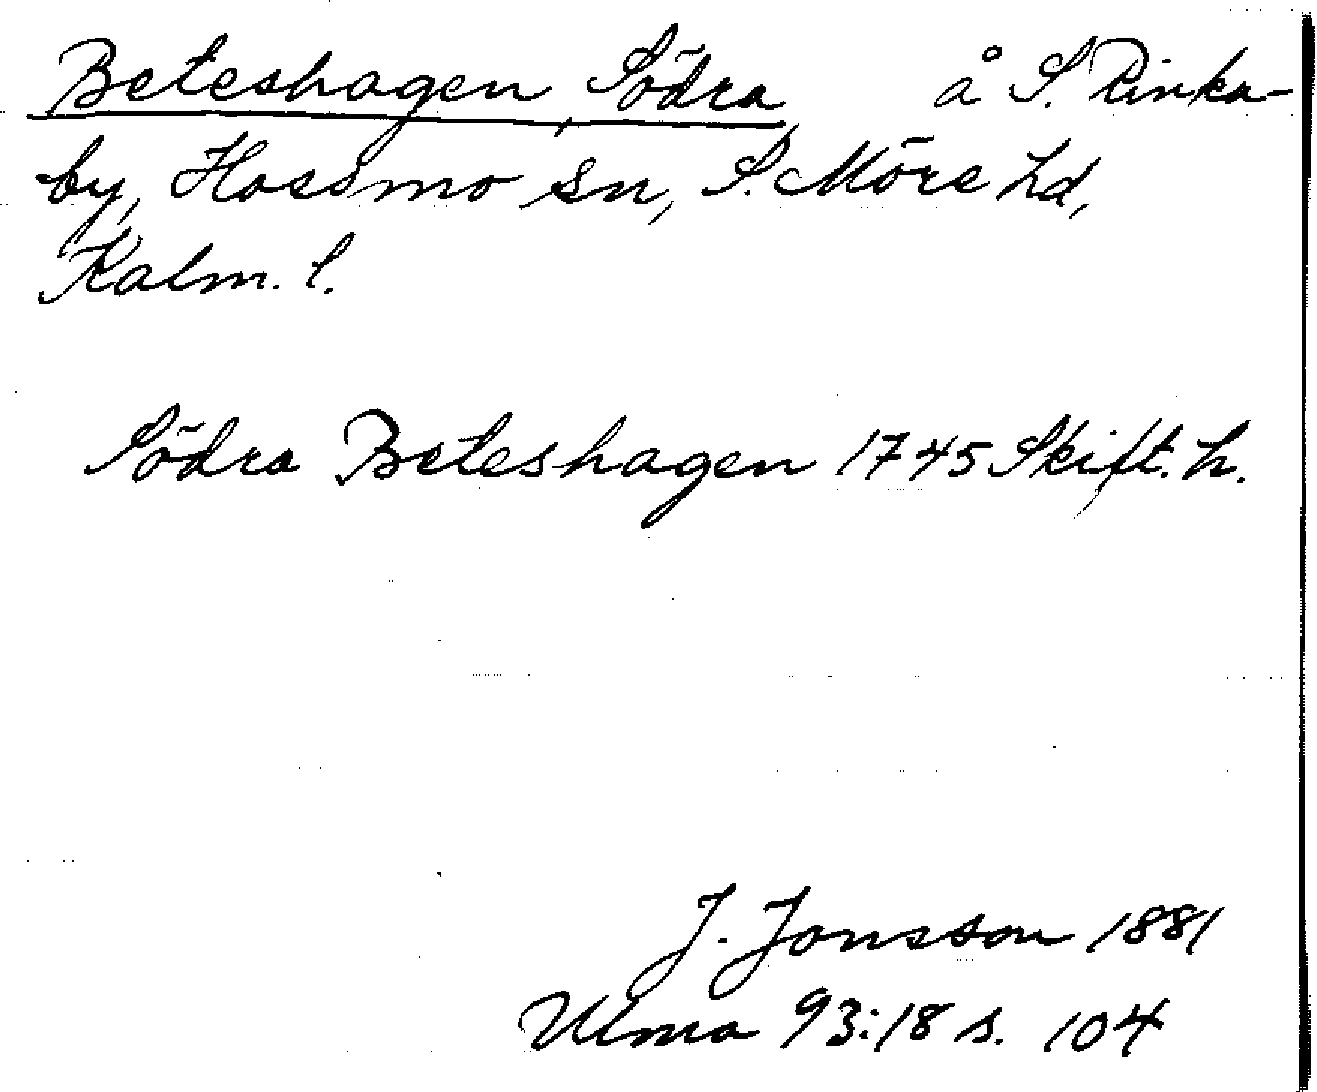 Beteshagen, Södra, å S. Rinka-
by, Hossmo sn, S. Möre hd,
Kalm. l.
Södra Beteshagen 1745 Skift. h.
J. Jonsson 1881
Ulma 93:18 s. 104